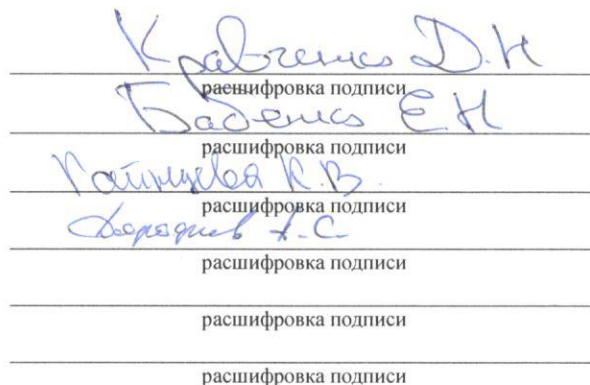 Кравченко Д.Н
расшифровка подписи
Баденко Е.Н
расшифровка подписи
К.В.
расшифровка подписи
А.С.
расшифровка подписи
расшифровка подписи
расшифровка подписи